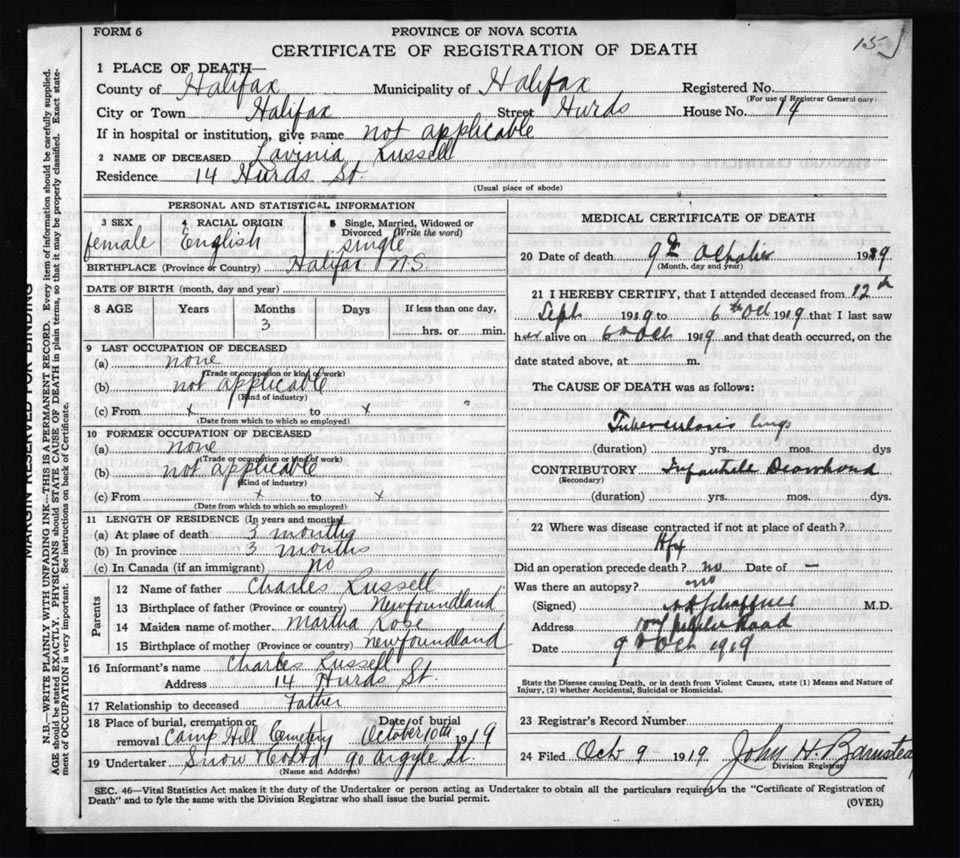 FORM 6
PROVINCE OF NOVA SCOTIA
CERTIFICATE OF REGISTRATION OF DEATH
15
1 PLACE OF DEATH—
County of Halifax Municipality of Halifax Registered No.
(For use of Registrar General only)
City or Town Halifax Street Hurds House No. 14
If in hospital or institution, give name not applicable
2 NAME OF DECEASED Lavinia Russell
Residence 14 Hurds St.
(Usual place of abode)
PERSONAL AND STATISTICAL INFORMATION
3 SEX 4 RACIAL ORIGIN 5 Single, Married, Widowed or Divorced (Write the word)
female English single
BIRTHPLACE (Province or Country) Halifax N.S.
DATE OF BIRTH (month, day and year)
8 AGE Years Months Days If less than one day,
3 hrs. or min.
9 LAST OCCUPATION OF DECEASED
(a) none
(Trade or occupation or kind of work)
(b) not applicable
(Kind of industry)
(c) From x to x "
(Date from which to which so employed)
10 FORMER OCCUPATION OF DECEASED
(a) none
(Trade or occupation or kind of work)
(b) not applicable
(Kind of industry)
(c) From x to x
(Date from which to which so employed)
11 LENGTH OF RESIDENCE (In years and months)
(a) At place of death 3 months
(b) In province 3 months
(c) In Canada (if an immigrant) no
Parents
12 Name of father Charles Russell
13 Birthplace of father (Province or country) Newfoundland
14 Maiden name of mother Martha Rose
15 Birthplace of mother (Province or country) newfoundland
16 Informant's name Charles Russell
Address 14 Hurds St.
17 Relationship to deceased Father
18 Place of burial, cremation or removal Camp Hill Cemetery Date of burial October 10th 1919
19 Undertaker Snow & Co Ltd 90 Argyle St.
(Name and Address)
MEDICAL CERTIFICATE OF DEATH
20 Date of death 9th October 1919
(Month, day and year)
21 I HEREBY CERTIFY, that I attended deceased from 12th
Sept 1919 to 6th Oct 1919 that I last saw
her alive on 6th Oct 1919 and that death occurred, on the
date stated above, at m.
The CAUSE OF DEATH was as follows:
Tuberculosis lungs
(duration) yrs. mos. dys
CONTRIBUTORY Infantile Diarrhoea
(Secondary)
(duration) yrs. mos. dys.
22 Where was disease contracted if not at place of death?
Hfx
Did an operation precede death? no Date of —
Was there an autopsy? no
(Signed) Schaffner M.D.
Address Road
Date 9th Oct 1919
State the Disease causing Death, or in death from Violent Causes, state (1) Means and Nature of
Injury, (2) whether Accidental, Suicidal or Homicidal.
23 Registrar's Record Number
24 Filed Oct 9 1919 John H. Barnstead
Division Registrar
SEC. 46—Vital Statistics Act makes it the duty of the Undertaker or person acting as Undertaker to obtain all the particulars required in the "Certificate of Registration of
Death" and to fyle the same with the Division Registrar who shall issue the burial permit.
(OVER)
MARGIN RESERVED FOR BINDING
N.B.—WRITE PLAINLY WITH UNFADING INK—THIS IS A PERMANENT RECORD. Every item of information should be carefully supplied.
AGE should be stated EXACTLY. PHYSICIANS should STATE CAUSE OF DEATH in plain terms, so that it may be properly classified. Exact state-
ment of OCCUPATION is very important. See instructions on back of Certificate.